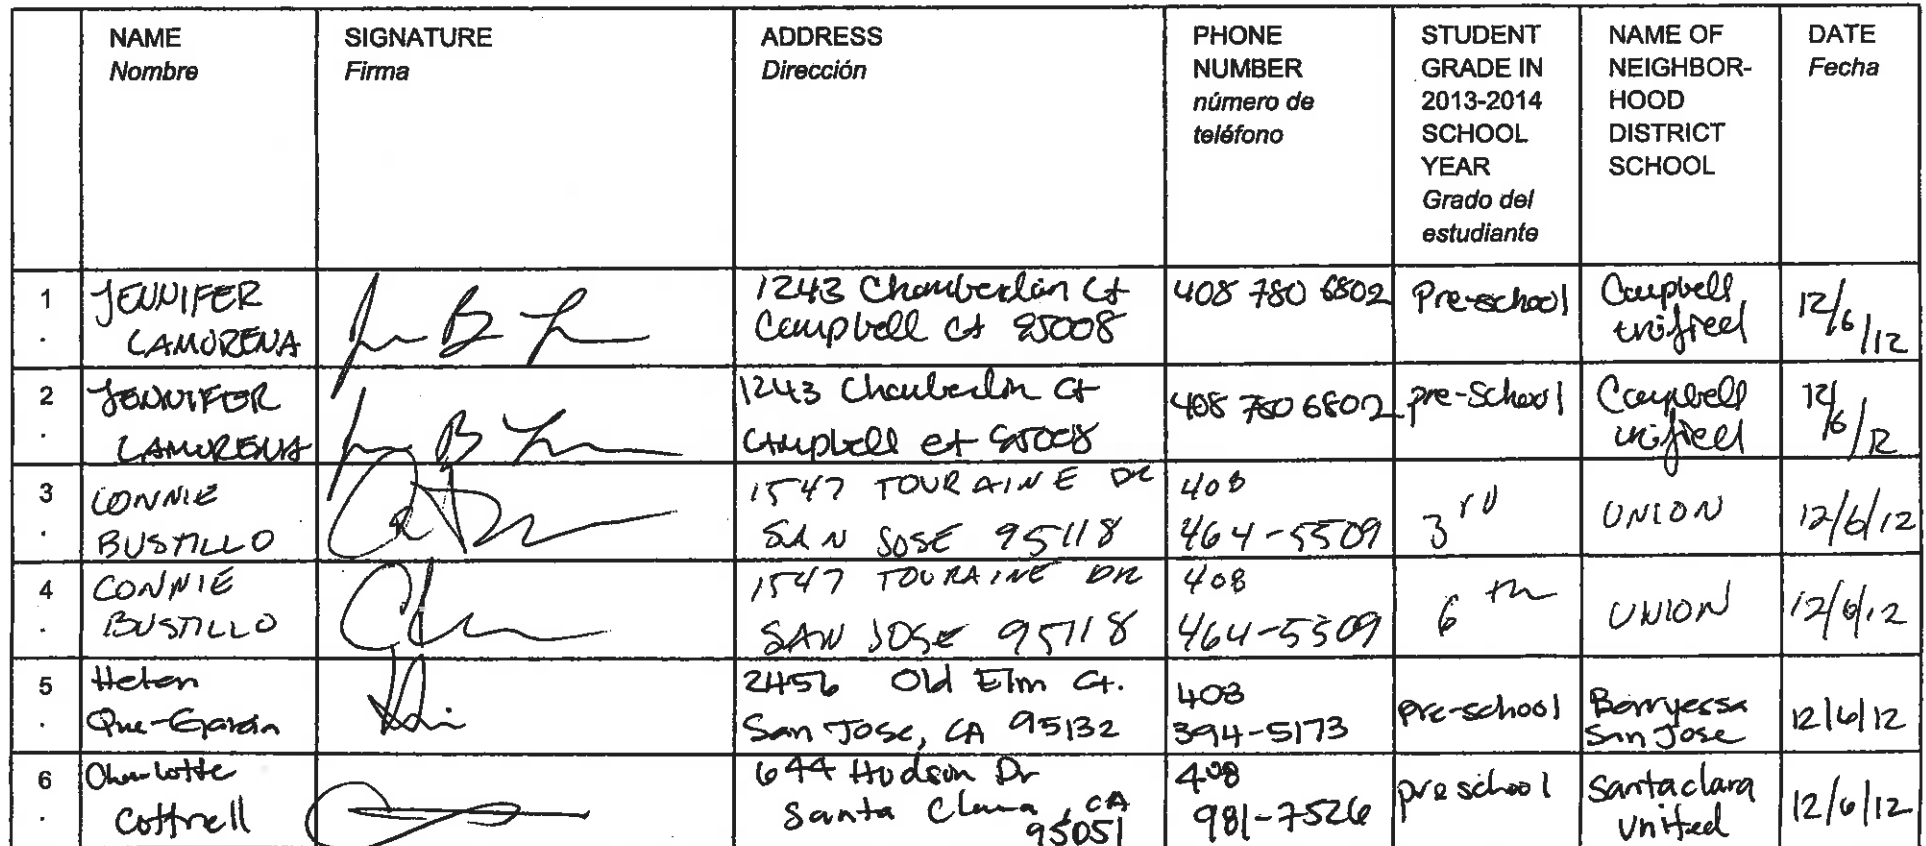 NAME
Nombre
SIGNATURE
Firma
ADDRESS
Dirección
PHONE
NUMBER
número de
teléfono
STUDENT
GRADE IN
2013-2014
SCHOOL
YEAR
Grado del
estudiante
NAME OF
NEIGHBOR-
HOOD
DISTRICT
SCHOOL
DATE
Fecha
1.
JENNIFER
LAMORENA
1243 Chamberlin Ct
Campbell CA 95008
408 780 6802
Pre-school
Campbell
unified
12/6/12
2.
JENNIFER
LAMORENA
1243 Chamberlin Ct
Campbell 95008
408 780 6802
pre-School
Campbell
unified
12/6/12
3.
CONNIE
BUSTILLO
1547 TOURAINE DR
SAN JOSE 95118
408
464-5509
3rd
UNION
12/6/12
4.
CONNIE
BUSTILLO
1547 TOURAINE DR
SAN JOSE 95118
408
464-5509
6th
UNION
12/6/12
5.
Helen
Que-Garcia
2456 Old Elm Ct.
San Jose, CA 95132
408
394-5173
pre-school
Berryessa
San Jose
12/6/12
6.
Charlotte
Cottrell
644 Hudson Dr
Santa Clara, CA
95051
408
981-7526
preschool
Santa clara
United
12/6/12